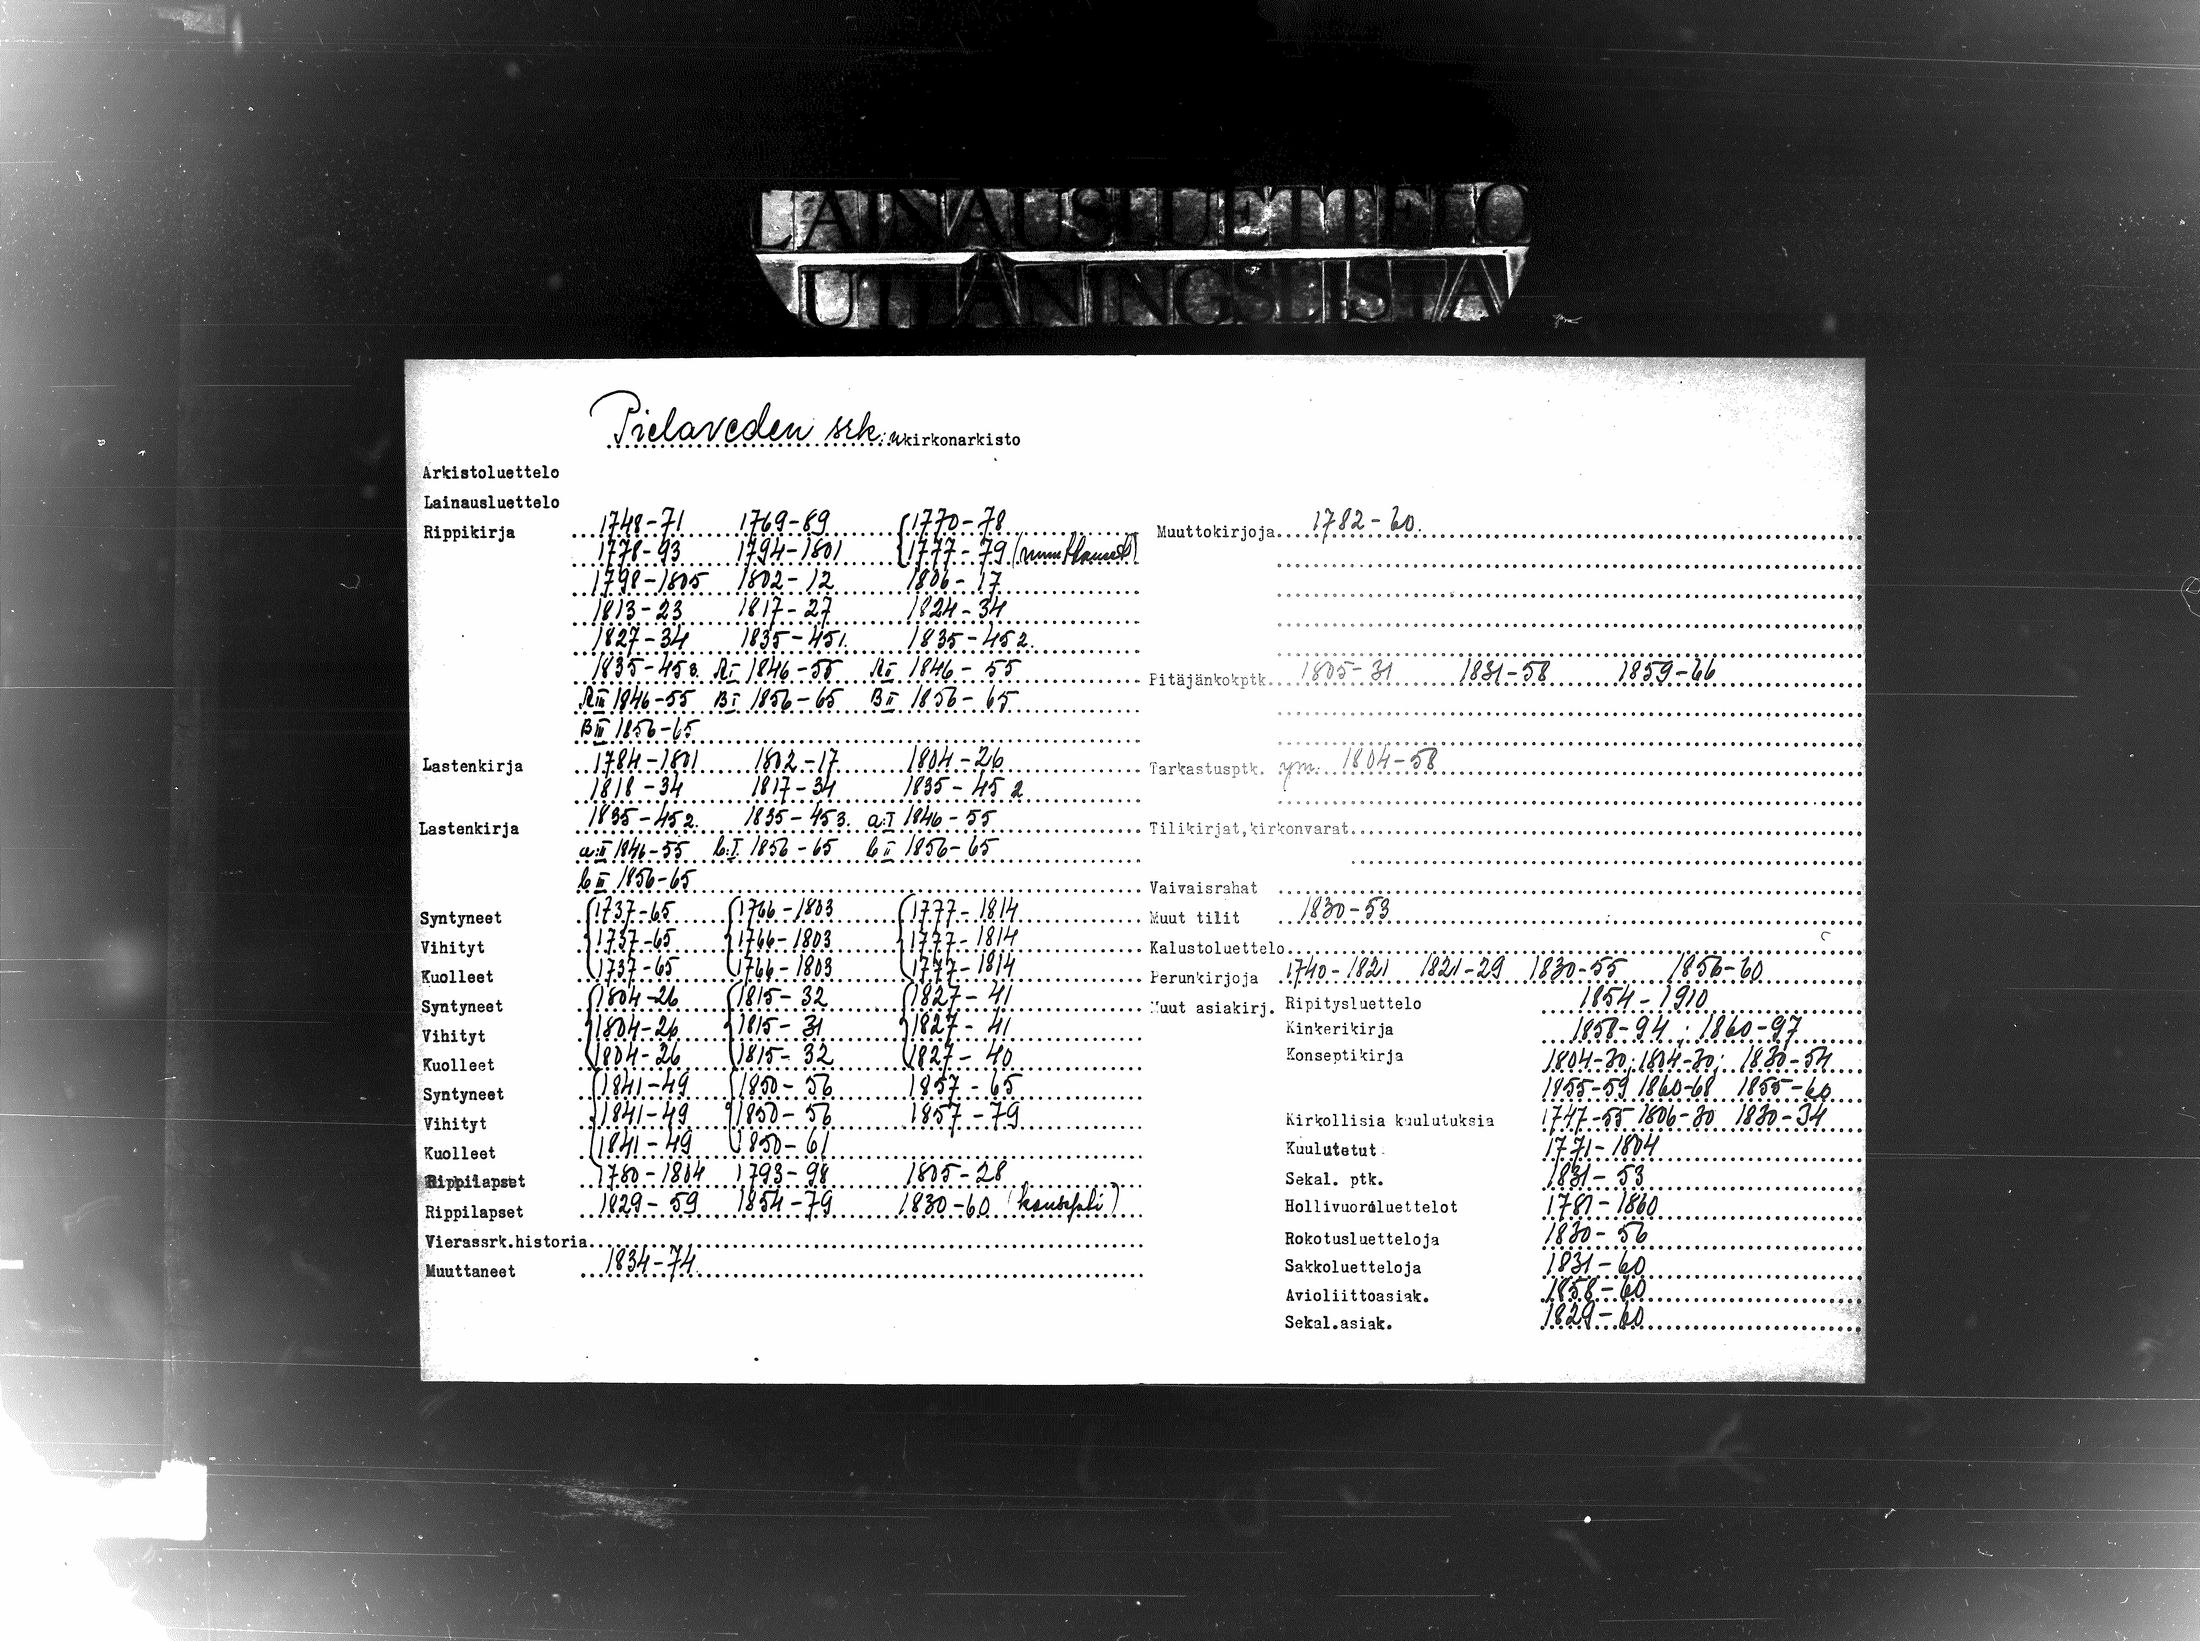 LAINAUSLUETTELO
UTLÅNINGSLISTA
Pielaveden srk:n kirkonarkisto
Arkistoluettelo
Lainausluettelo
Rippikirja 1748-71 1769-89 1770-78
1778-93 1794-1801 1777-79
1798-1805 1802-12 1806-17
1813-23 1817-27 1824-34
1827-34 1835-45 1. 1835-45 2.
1835-45 3. AI 1846-55 AII 1846-55
AIII 1846-55 BI 1856-65 BII 1856-65
BIII 1856-65
Lastenkirja 1784-1801 1802-17 1804-26
1818-34 1817-34 1835-45 2
Lastenkirja 1835-45 2. 1835-45 3. a:I 1846-55
a:II 1846-55 b:I 1856-65 b II 1856-65
b III 1856-65
Syntyneet 1737-65 1766-1803 1777-1814
Vihityt 1737-65 1766-1803 1777-1814
Kuolleet 1737-65 1766-1803 1777-1814
Syntyneet 1804-26 1815-32 1827-41
Vihityt 1804-26 1815-31 1827-41
Kuolleet 1804-26 1815-32 1827-40
Syntyneet 1841-49 1850-56 1857-65
Vihityt 1841-49 1850-56 1857-79
Kuolleet 1841-49 1850-61
Rippilapset 1780-1804 1793-98 1805-28
Rippilapset 1829-59 1854-79 1830-60 (konsepti)
Vierassrk.historia
Muuttaneet 1834-74
Muuttokirjoja 1782-60.
Pitäjänkokptk. 1805-31 1831-58 1859-66
Tarkastusptk. ym. 1804-58
Tilikirjat,kirkonvarat
Vaivaisrahat
Muut tilit 1830-53
Kalustoluettelo
Perunkirjoja 1740-1821 1821-29 1830-55 1856-60
Muut asiakirj. Ripitysluettelo 1854-1910
Kinkerikirja 1858-94; 1860-97
Konseptikirja 1804-30; 1804-30; 1830-54
1855-59 1860-68 1855-60
Kirkollisia kuulutuksia 1747-55 1806-30 1830-34
Kuulutetut 1771-1804
Sekal. ptk. 1831-53
Hollivuoroluettelot 1781-1860
Rokotusluetteloja 1830-56
Sakkoluetteloja 1831-60
Avioliittoasiak. 1858-60
Sekal.asiak. 1829-60